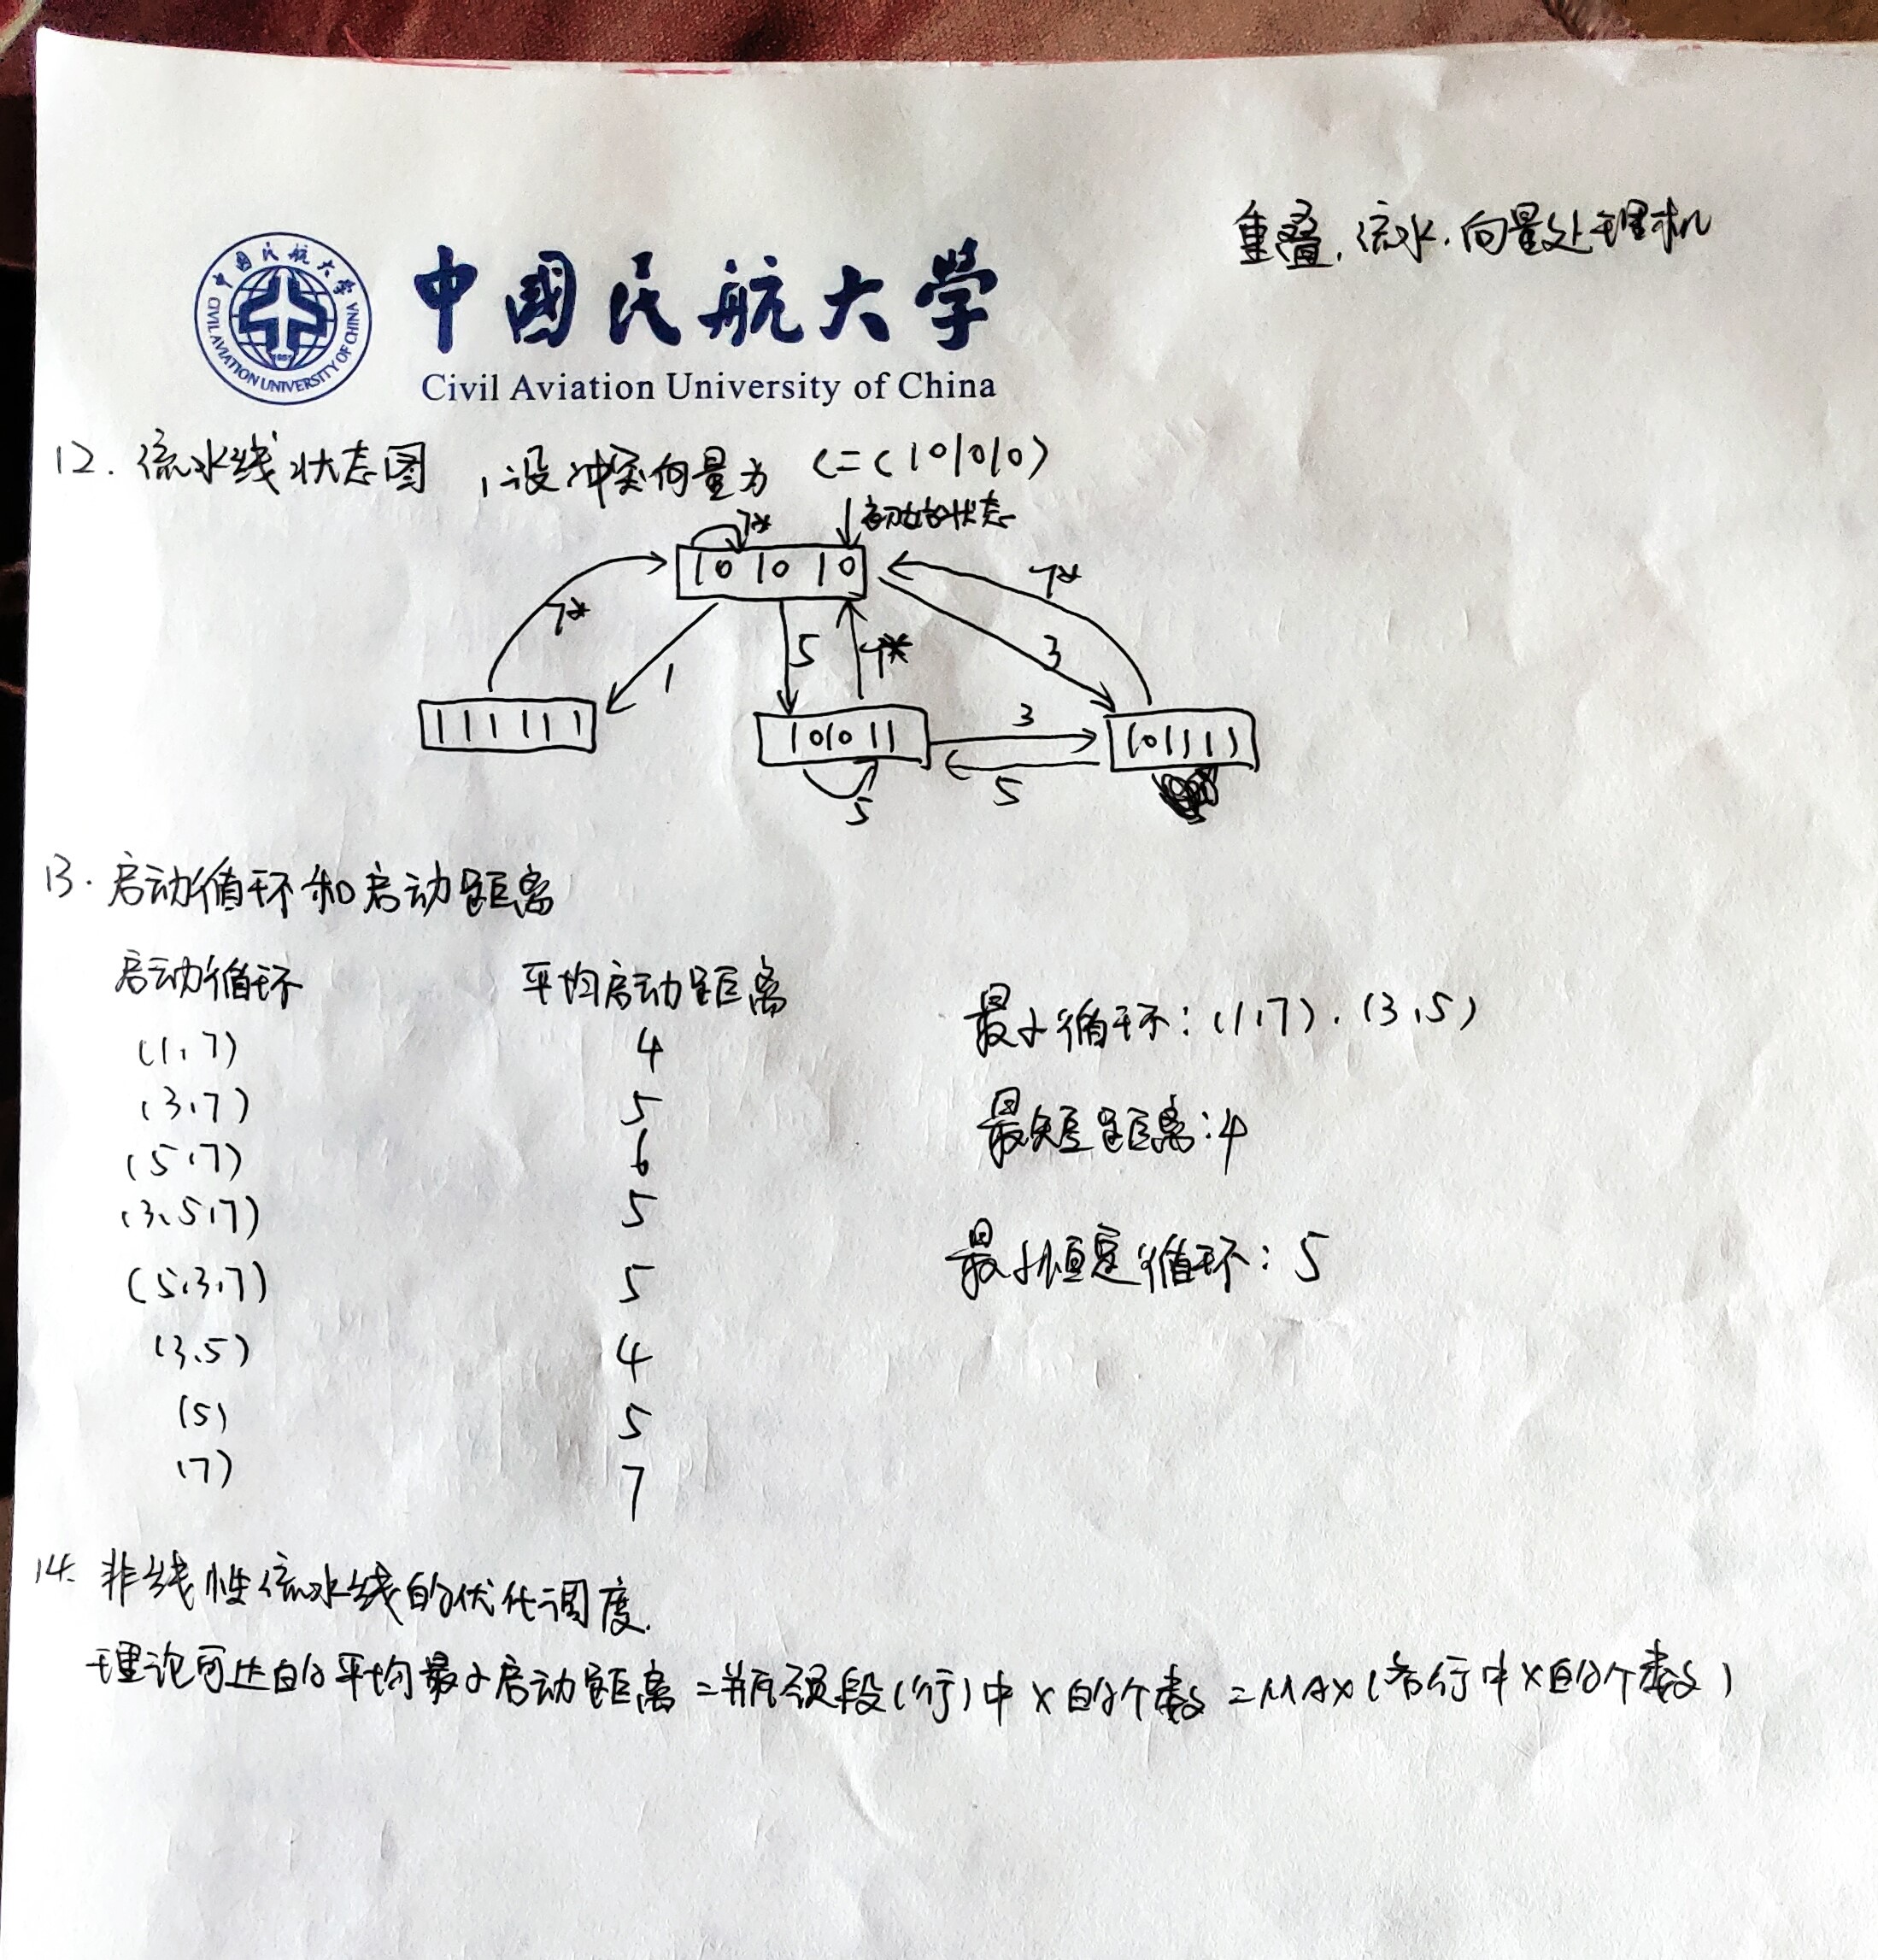 重叠、流水、向量处理机
中國民航大学
CIVIL AVIATION UNIVERSITY OF CHINA
1951
Civil Aviation University of China
12. 流水线状态图，设冲突向量为 C=(101010)
7* 初始状态
101010
7* 1 5 7* 3 7*
111111 101011 3 101111
5 5
13. 启动循环和启动距离
启动循环 平均启动距离
(1,7) 4 最小循环：(1,7)、(3,5)
(3,7) 5
(5,7) 6 最短距离：4
(3,5,7) 5
(5,3,7) 5 最小恒定循环：5
(3,5) 4
(5) 5
(7) 7
14. 非线性流水线的优化调度.
理论可达的平均最小启动距离=瓶颈段(行)中×的个数=MAX(各行中×的个数)